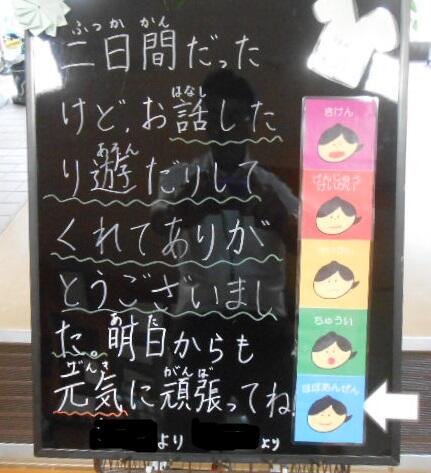 ふつかかん
二日間だった
はなし
けど、お話した
あそん
り遊だりして
くれてありが
とうございまし
た。明日からも
あした
げんき がんば
元気に頑張ってね
より より
きけん
げんじゅう
けいかい
けいかい
ちゅうい
ほぼあんぜん